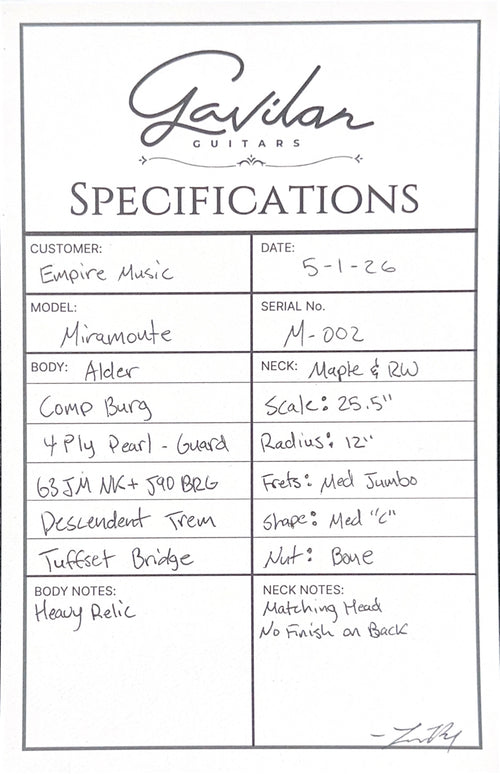 Gavilan
GUITARS
SPECIFICATIONS
CUSTOMER:
Empire Music
DATE:
5-1-26
MODEL:
Miramonte
SERIAL No.
M-002
BODY: Alder
Comp Burg
4 Ply Pearl - Guard
63 JM NK + J90 BRG
Descendent Trem
Tuffset Bridge
NECK: Maple & RW
Scale: 25.5"
Radius: 12"
Frets: Med Jumbo
Shape: Med "C"
Nut: Bone
BODY NOTES:
Heavy Relic
NECK NOTES:
Matching Head
No Finish on Back